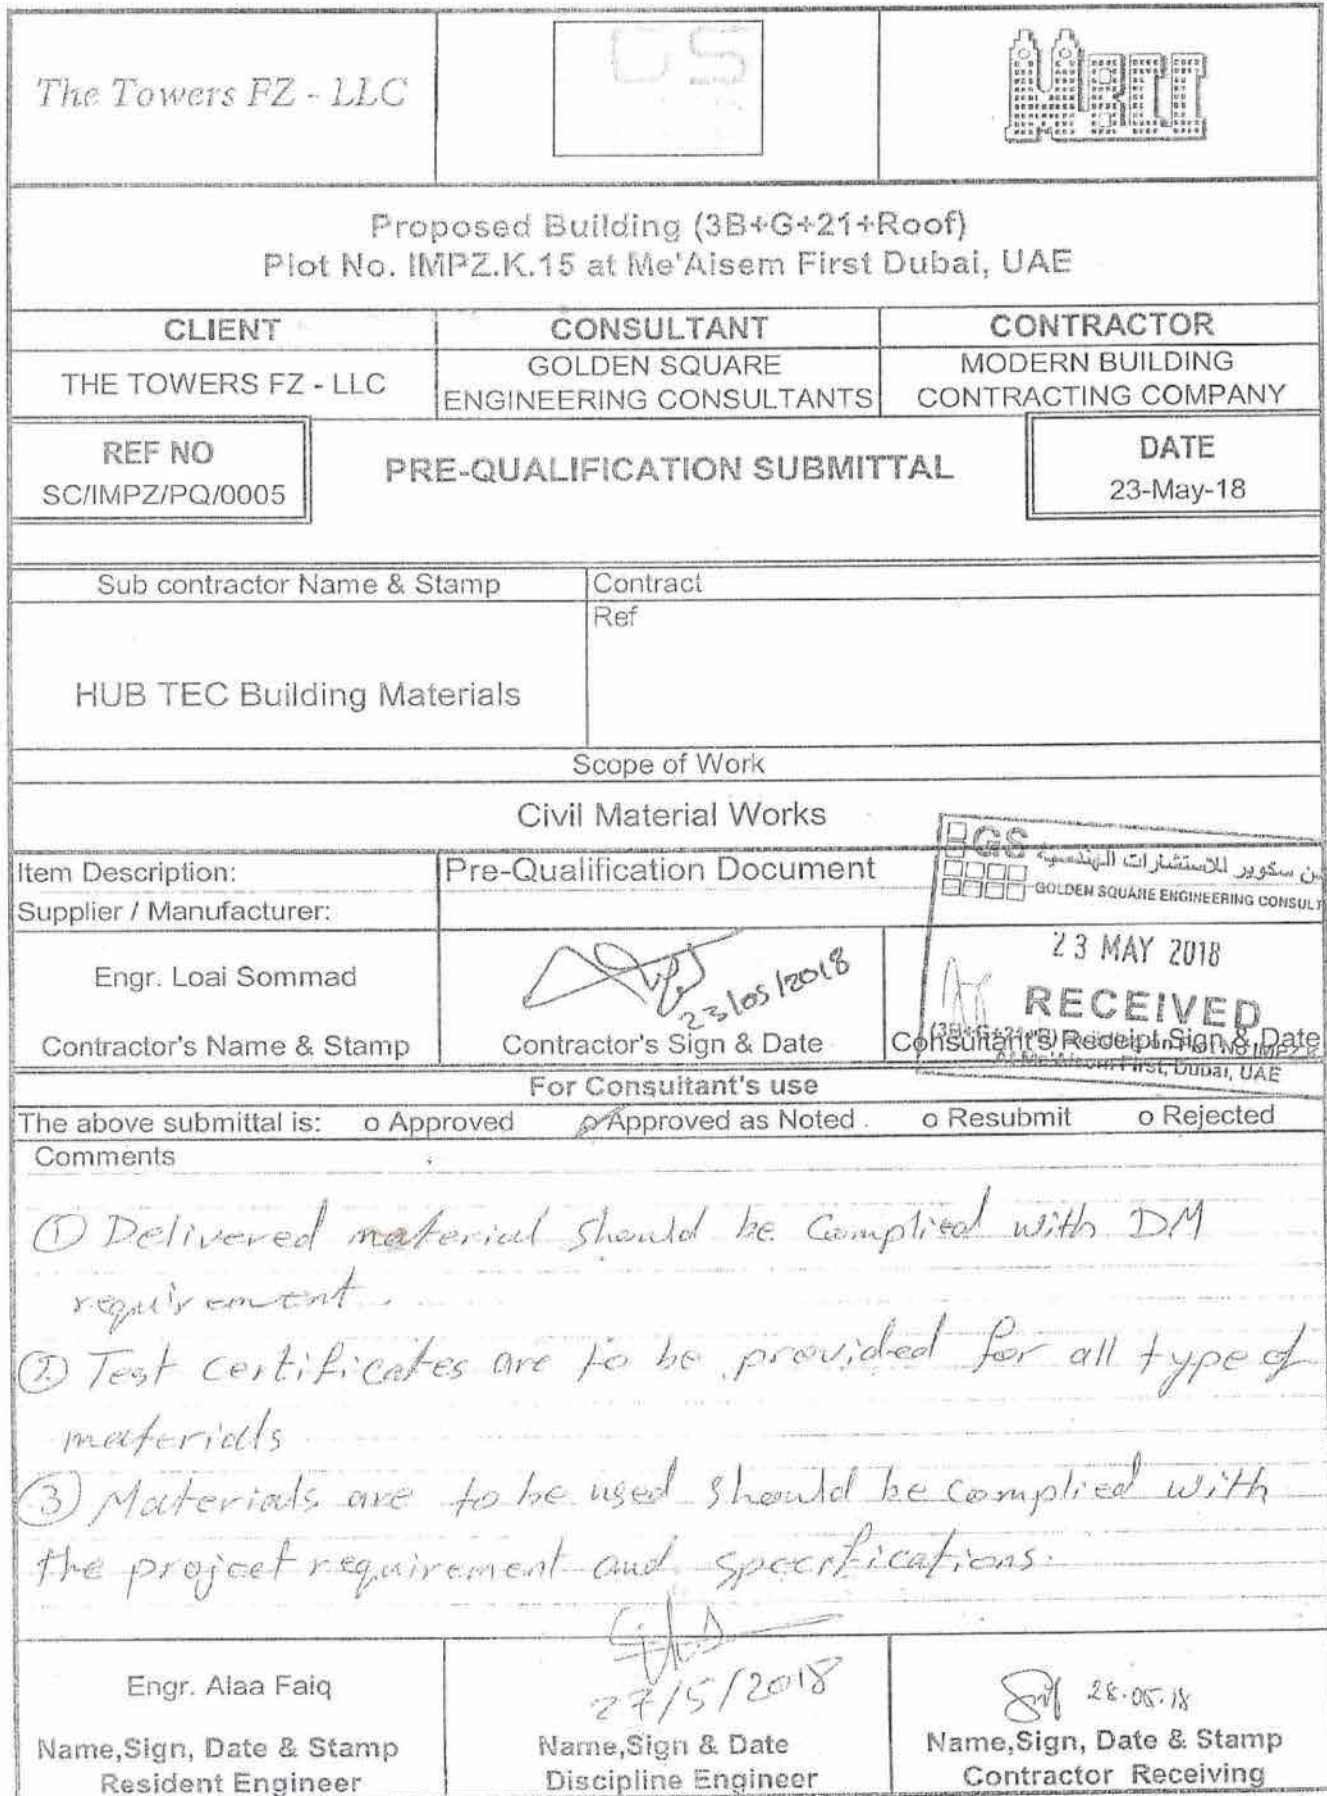 The Towers FZ - LLC
GS
Proposed Building (3B+G+21+Roof)
Plot No. IMPZ.K.15 at Me'Aisem First Dubai, UAE
CLIENT
CONSULTANT
CONTRACTOR
THE TOWERS FZ - LLC
GOLDEN SQUARE
ENGINEERING CONSULTANTS
MODERN BUILDING
CONTRACTING COMPANY
REF NO
SC/IMPZ/PQ/0005
PRE-QUALIFICATION SUBMITTAL
DATE
23-May-18
Sub contractor Name & Stamp
Contract
Ref
HUB TEC Building Materials
Scope of Work
Civil Material Works
GS
سكوير للاستشارات الهندسية
GOLDEN SQUARE ENGINEERING CONSULT
23 MAY 2018
RECEIVED
First, Dubai, UAE
Item Description:
Pre-Qualification Document
Supplier / Manufacturer:
Engr. Loai Sommad
23/05/2018
Contractor's Name & Stamp
Contractor's Sign & Date
Consultant's Receipt Sign & Date
For Consultant's use
The above submittal is: o Approved o Approved as Noted . o Resubmit o Rejected
Comments
① Delivered material should be Complied with DM
requirement.
② Test certificates are to be provided for all type of
materials
③ Materials are to be used should be complied with
the project requirement and specifications.
Engr. Alaa Faiq
27/5/2018
28.05.18
Name,Sign, Date & Stamp
Resident Engineer
Name,Sign & Date
Discipline Engineer
Name,Sign, Date & Stamp
Contractor Receiving